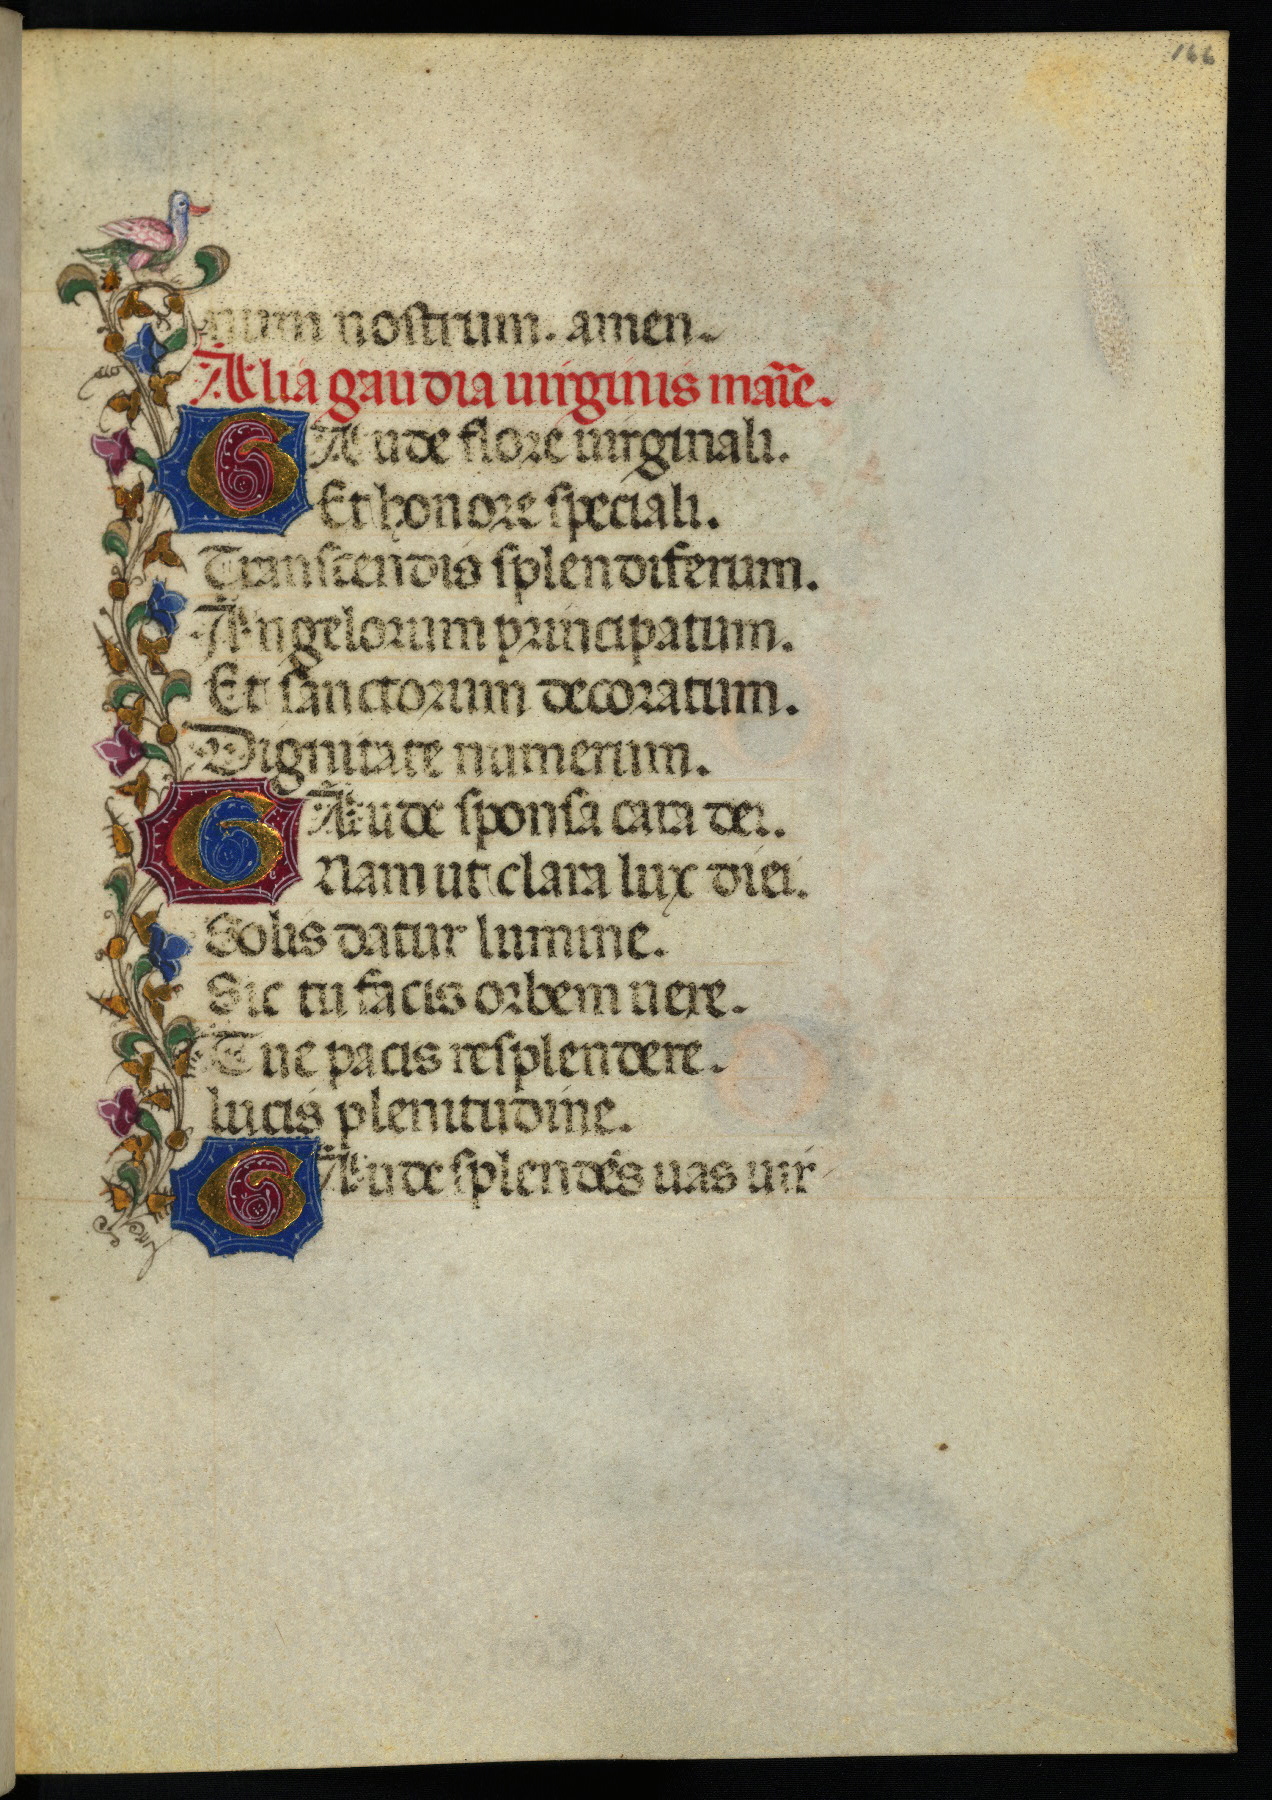 166
num nostrum. amen.
Alia gaudia uirginis marīe.
GAude flore uirginali.
Et honore speciali.
Transcendis splendiferum.
Angelorum principatum.
Et sanctorum decoratum.
Dignitate numerum.
GAude sponsa cara dei.
Nam ut clara lux diei.
Solis datur lumine.
Sic tu facis orbem uere.
Tue pacis resplendere.
lucis plenitudine.
GAude splendēs uas uir